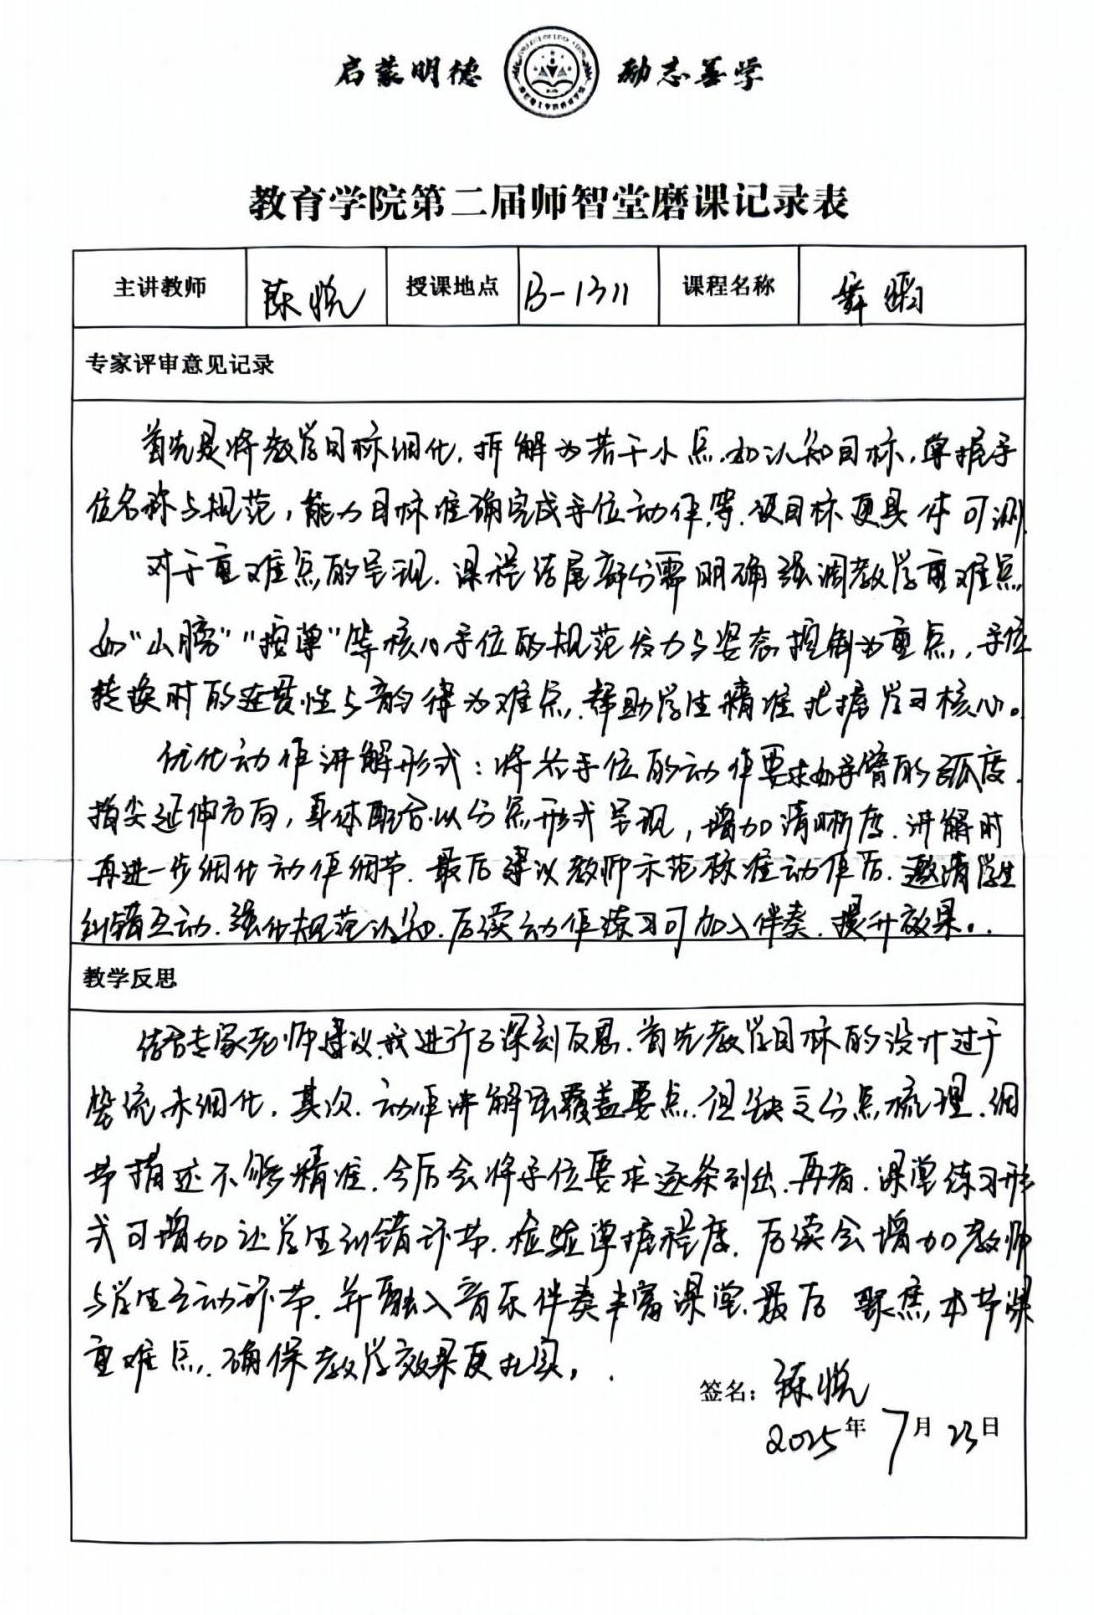 启蒙明德 励志善学
教育学院第二届师智堂磨课记录表
主讲教师 陈悦 授课地点 B-1311 课程名称 舞蹈
专家评审意见记录
首先是将教学目标细化,拆解为若干小点.如认知目标,掌握手
位名称与规范,能力目标准确完成手位动作,等.使目标更具体可测
对于重难点的呈现.课程结尾部分需明确强调教学重难点
如"山膀""按掌"等核心手位的规范发力与姿态控制为重点,手位
转换时的连贯性与韵律为难点.帮助学生精准把握学习核心。
优化动作讲解形式:将各手位的动作要求如手臂的弧度.
指尖延伸方向,身体配合以分点形式呈现,增加清晰度.讲解时
再进一步细化动作细节.最后建议教师示范标准动作后.邀请学生
纠错互动.强化规范认知.后续动作练习可加入伴奏.提升效果。
教学反思
结合专家老师建议.我进行了深刻反思.首先教学目标的设计过于
笼统未细化.其次.动作讲解虽覆盖要点.但缺乏分点梳理.细
节描述不够精准.今后会将手位要求逐条列出.再者.课堂练习形
式可增加让学生纠错环节.检验掌握程度.后续会增加教师
与学生互动环节.并融入音乐伴奏丰富课堂.最后 聚焦本节课
重难点.确保教学效果更扎实。
签名:陈悦
2025年7月23日